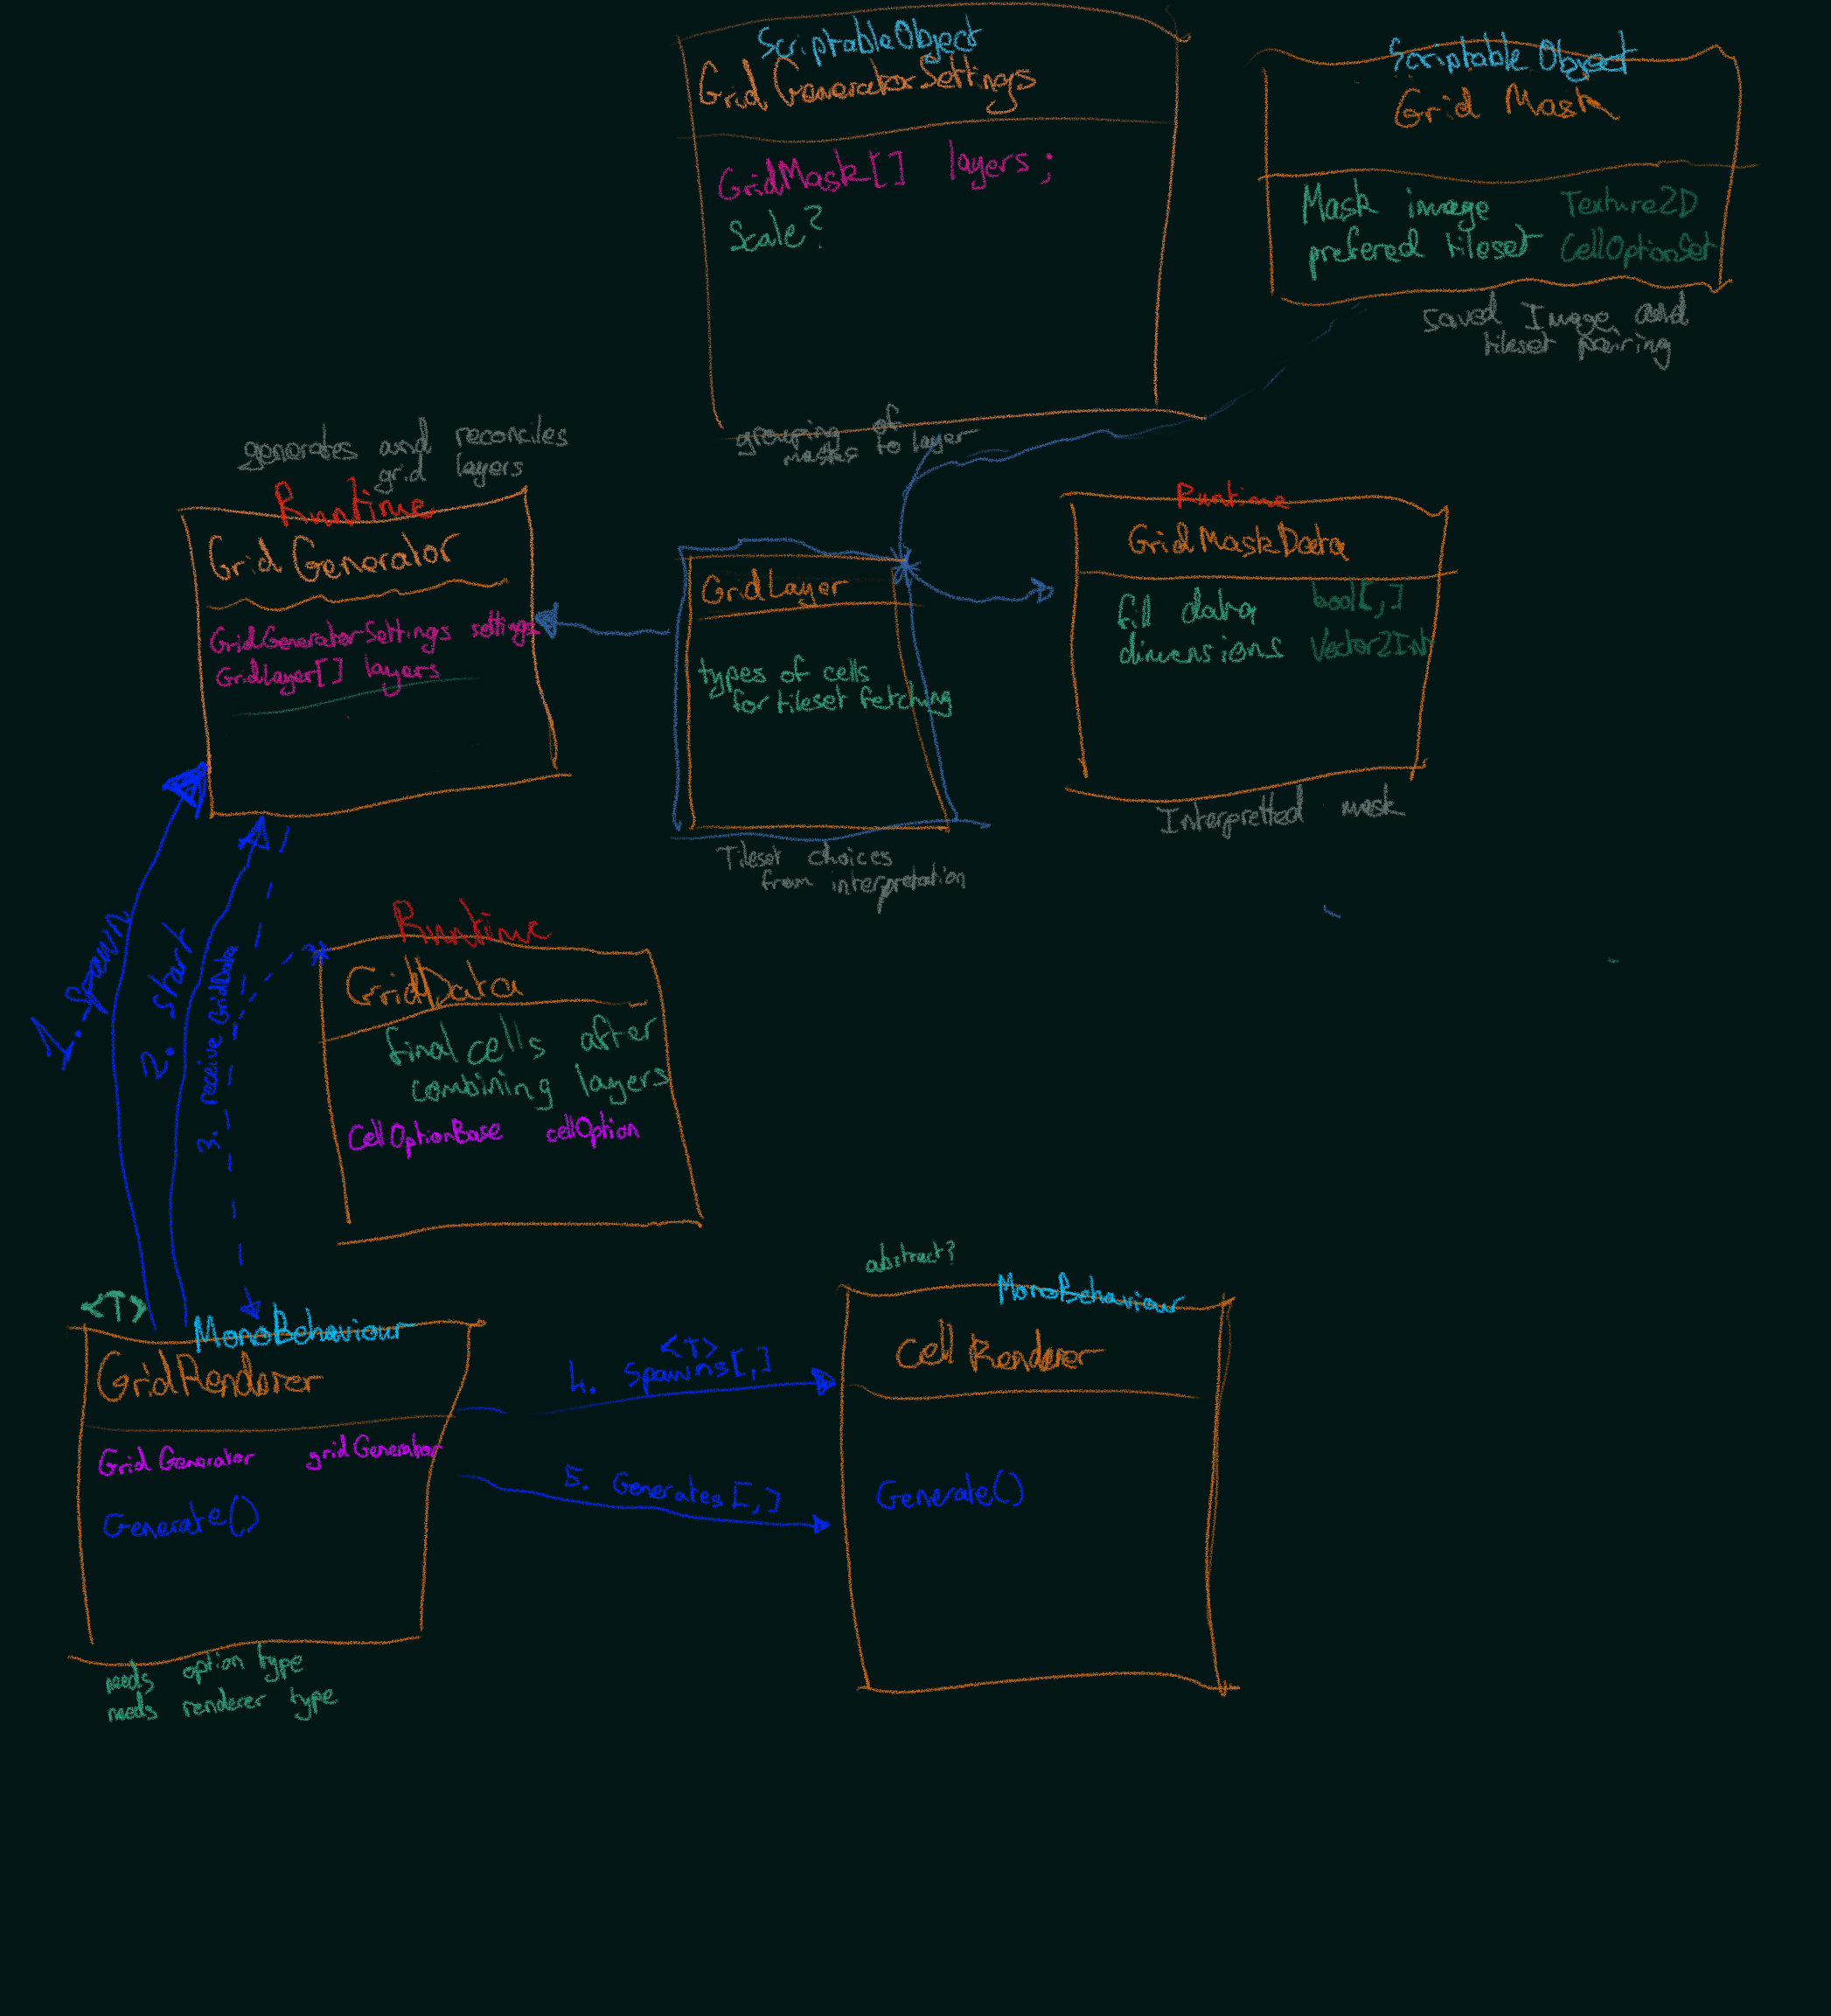 ScriptableObject
Grid GeneratorSettings
GridMask[] layers;
Scale?
grouping of
masks to layer
Scriptable Object
Grid Mask
Mask image Texture2D
prefered tileset CellOptionSet
saved Image and
tileset pairing
generates and reconciles
grid layers
Runtime
Grid Generator
GridGeneratorSettings settings
GridLayer[] layers
GridLayer
types of cells
for tileset fetching
Tileset choices
from interpretation
Runtime
GridMaskData
fill data bool[,]
dimensions Vector2Int
Interpretted mask
1. Spawn
2. start
3. receive GridData
Runtime
GridData
final cells after
combining layers
CellOptionBase cellOption
<T>
MonoBehaviour
GridRenderer
Grid Generator gridGenerator
Generate()
needs option type
needs renderer type
<T>
4. Spawns[,]
5. Generates[,]
abstract?
MonoBehaviour
Cell Renderer
Generate()